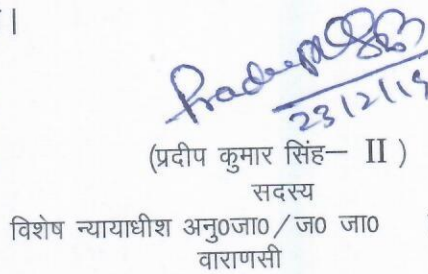 ।
Pradeep
23/2/19
(प्रदीप कुमार सिंह– II )
सदस्य
विशेष न्यायाधीश अनु0जा0 / ज0 जा0
वाराणसी